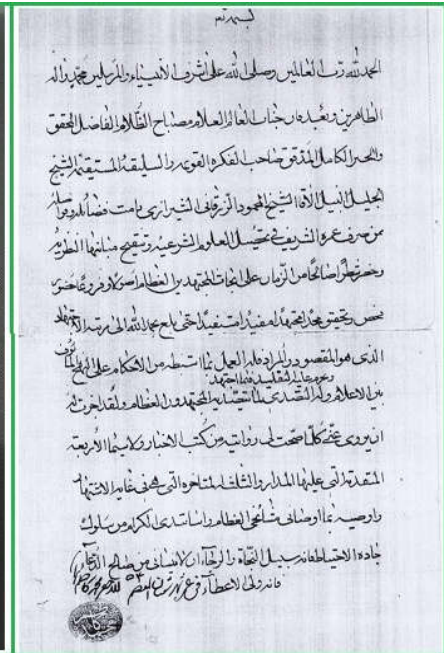 بسمه تعالی
الحمد لله رب العالمین وصلی الله علی اشرف الانبیاء والمرسلین محمد واله
الطاهرین وبعد فان جناب العالم العلام مصباح الظلام الفاضل المحقق
والحبر الکامل المدقق صاحب الفکرة القویمة والسلیقة المستقیمة الشیخ
الجلیل النبیل الآقا الشیخ محمود الزرقانی الشیرازی دامت فضائله وفواضله
ممن صرف عمره الشریف فی تحصیل العلوم الشرعیة وتنقیح مبانیها النظریة
وحضر شطرا صالحا من الزمان علی ابحاث المجتهدین العظام اصولا وفروعا حضور
فحص وتحقق مجدا مجتهدا مفیدا مستفیدا حتی بلغ بحمد الله الی مرتبة الاجتهاد
الذی هو المقصود والمراد فله العمل بما استنبطه من الاحکام علی النهج المألوف
وحرم علیه التقلید فیما اجتهد
بین الاعلام وله التصدی لما یتصدیه المجتهدون العظام ولقد اجزت له
ان یروی عنی کلما صحت لی روایته من کتب الاخبار ولا سیما الاربعة
المتقدمة التی علیها المدار والثلاثة المتاخرة التی هی فی غایة الاشتهار
واوصیه بما اوصانی مشائخی العظام واساتذتی الکرام من سلوک
جادة الاحتیاط فانه سبیل النجاة والرجاء ان لا ینسانی من صالح الدعاء
فانه ولی الاعطاء فی شهر